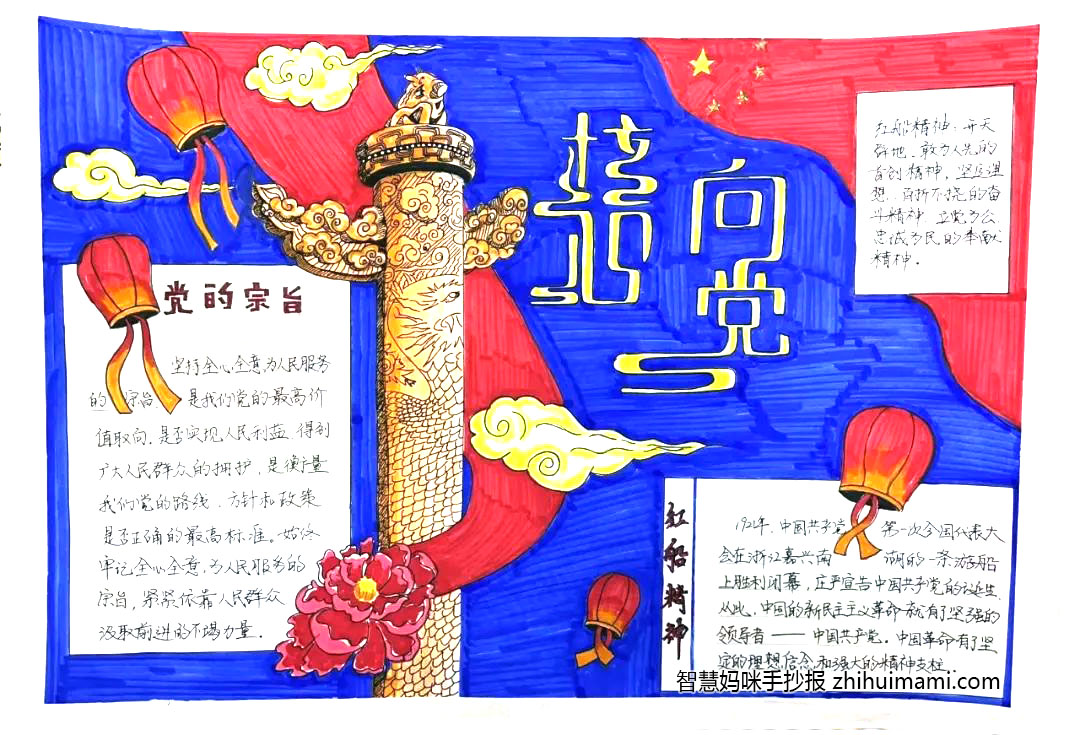 授向党
党的宗旨
坚持全心全意为人民服务
的宗旨。是我们党的最高价
值取向.是否实现人民利益.得到
广大人民群众的拥护,是衡量
我们党的路线.方针和政策
是否正确的最高标准。始终
牢记全心全意,为人民服务的
宗旨,紧紧依靠人民群众
汲取前进的不竭力量.
红船精神:开天
辟地.敢为人先的
首创精神,坚定理
想.百折不挠的奋
斗精神 立党为公.
忠诚为民的奉献
精神。
红船精神
1921年.中国共产党第一次全国代表大
会在浙江嘉兴南湖的一条游船
上胜利闭幕,庄严宣告中国共产党的诞生.
从此.中国的新民主主义革命就有了坚强的
领导者——中国共产党.中国革命有了坚
定的理想信念和强大的精神支柱..
智慧妈咪手抄报 zhihuimami.com